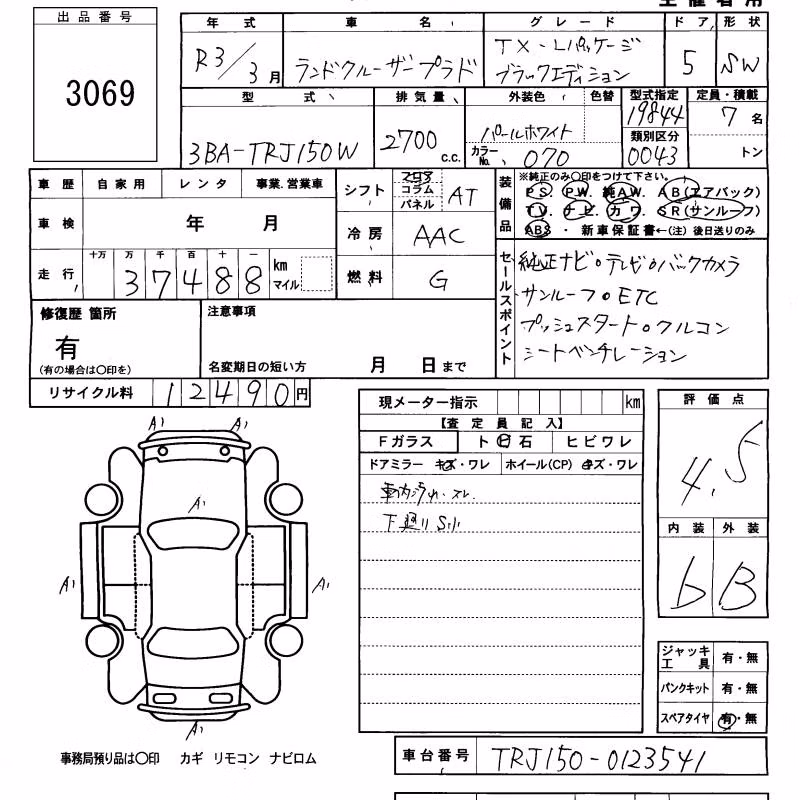 出品番号
3069
年式 車名 グレード ドア 形状
R3/3月 ランドクルーザープラド TX-Lパッケージ 5 SW
ブラックエディション
型式 排気量 外装色 色替 型式指定 定員・積載
3BA-TRJ150W 2700 c.c. パールホワイト 19844 7名
類別区分
カラーNo. 070 0043 トン
車歴 自家用 レンタ 事業.営業車
シフト フロア コラム パネル AT
装備品
※純正のみ〇印をつけて下さい。
PS. PW. 純AW. AB(エアバック)
TV. ナビ. カワ. SR(サンルーフ)
ABS ・ 新車保証書←(注) 後日送りのみ
車検 年 月
冷房 AAC
走行 十万 万 千 百 十 一
37488 km マイル
燃料 G
セールスポイント
純正ナビ・テレビ・バックカメラ
サンルーフ・ETC
プッシュスタート・クルコン
シートベンチレーション
修復歴 箇所
有
(有の場合は〇印を)
注意事項
名変期日の短い方 月 日まで
リサイクル料 12490円
現メーター指示 km
【査定員記入】
Fガラス ト ビ 石 ヒビワレ
ドアミラー キズ・ワレ ホイール(CP) キズ・ワレ
車内汚れ.スレ.
下廻りS小
評価点
4.5
内装 外装
b B
A1 A1
A1
A1 A1
A1
ジャッキ工具 有・無
パンクキット 有・無
スペアタイヤ 有・無
事務局預り品は〇印 カギ リモコン ナビロム
車台番号 TRJ150-0123541